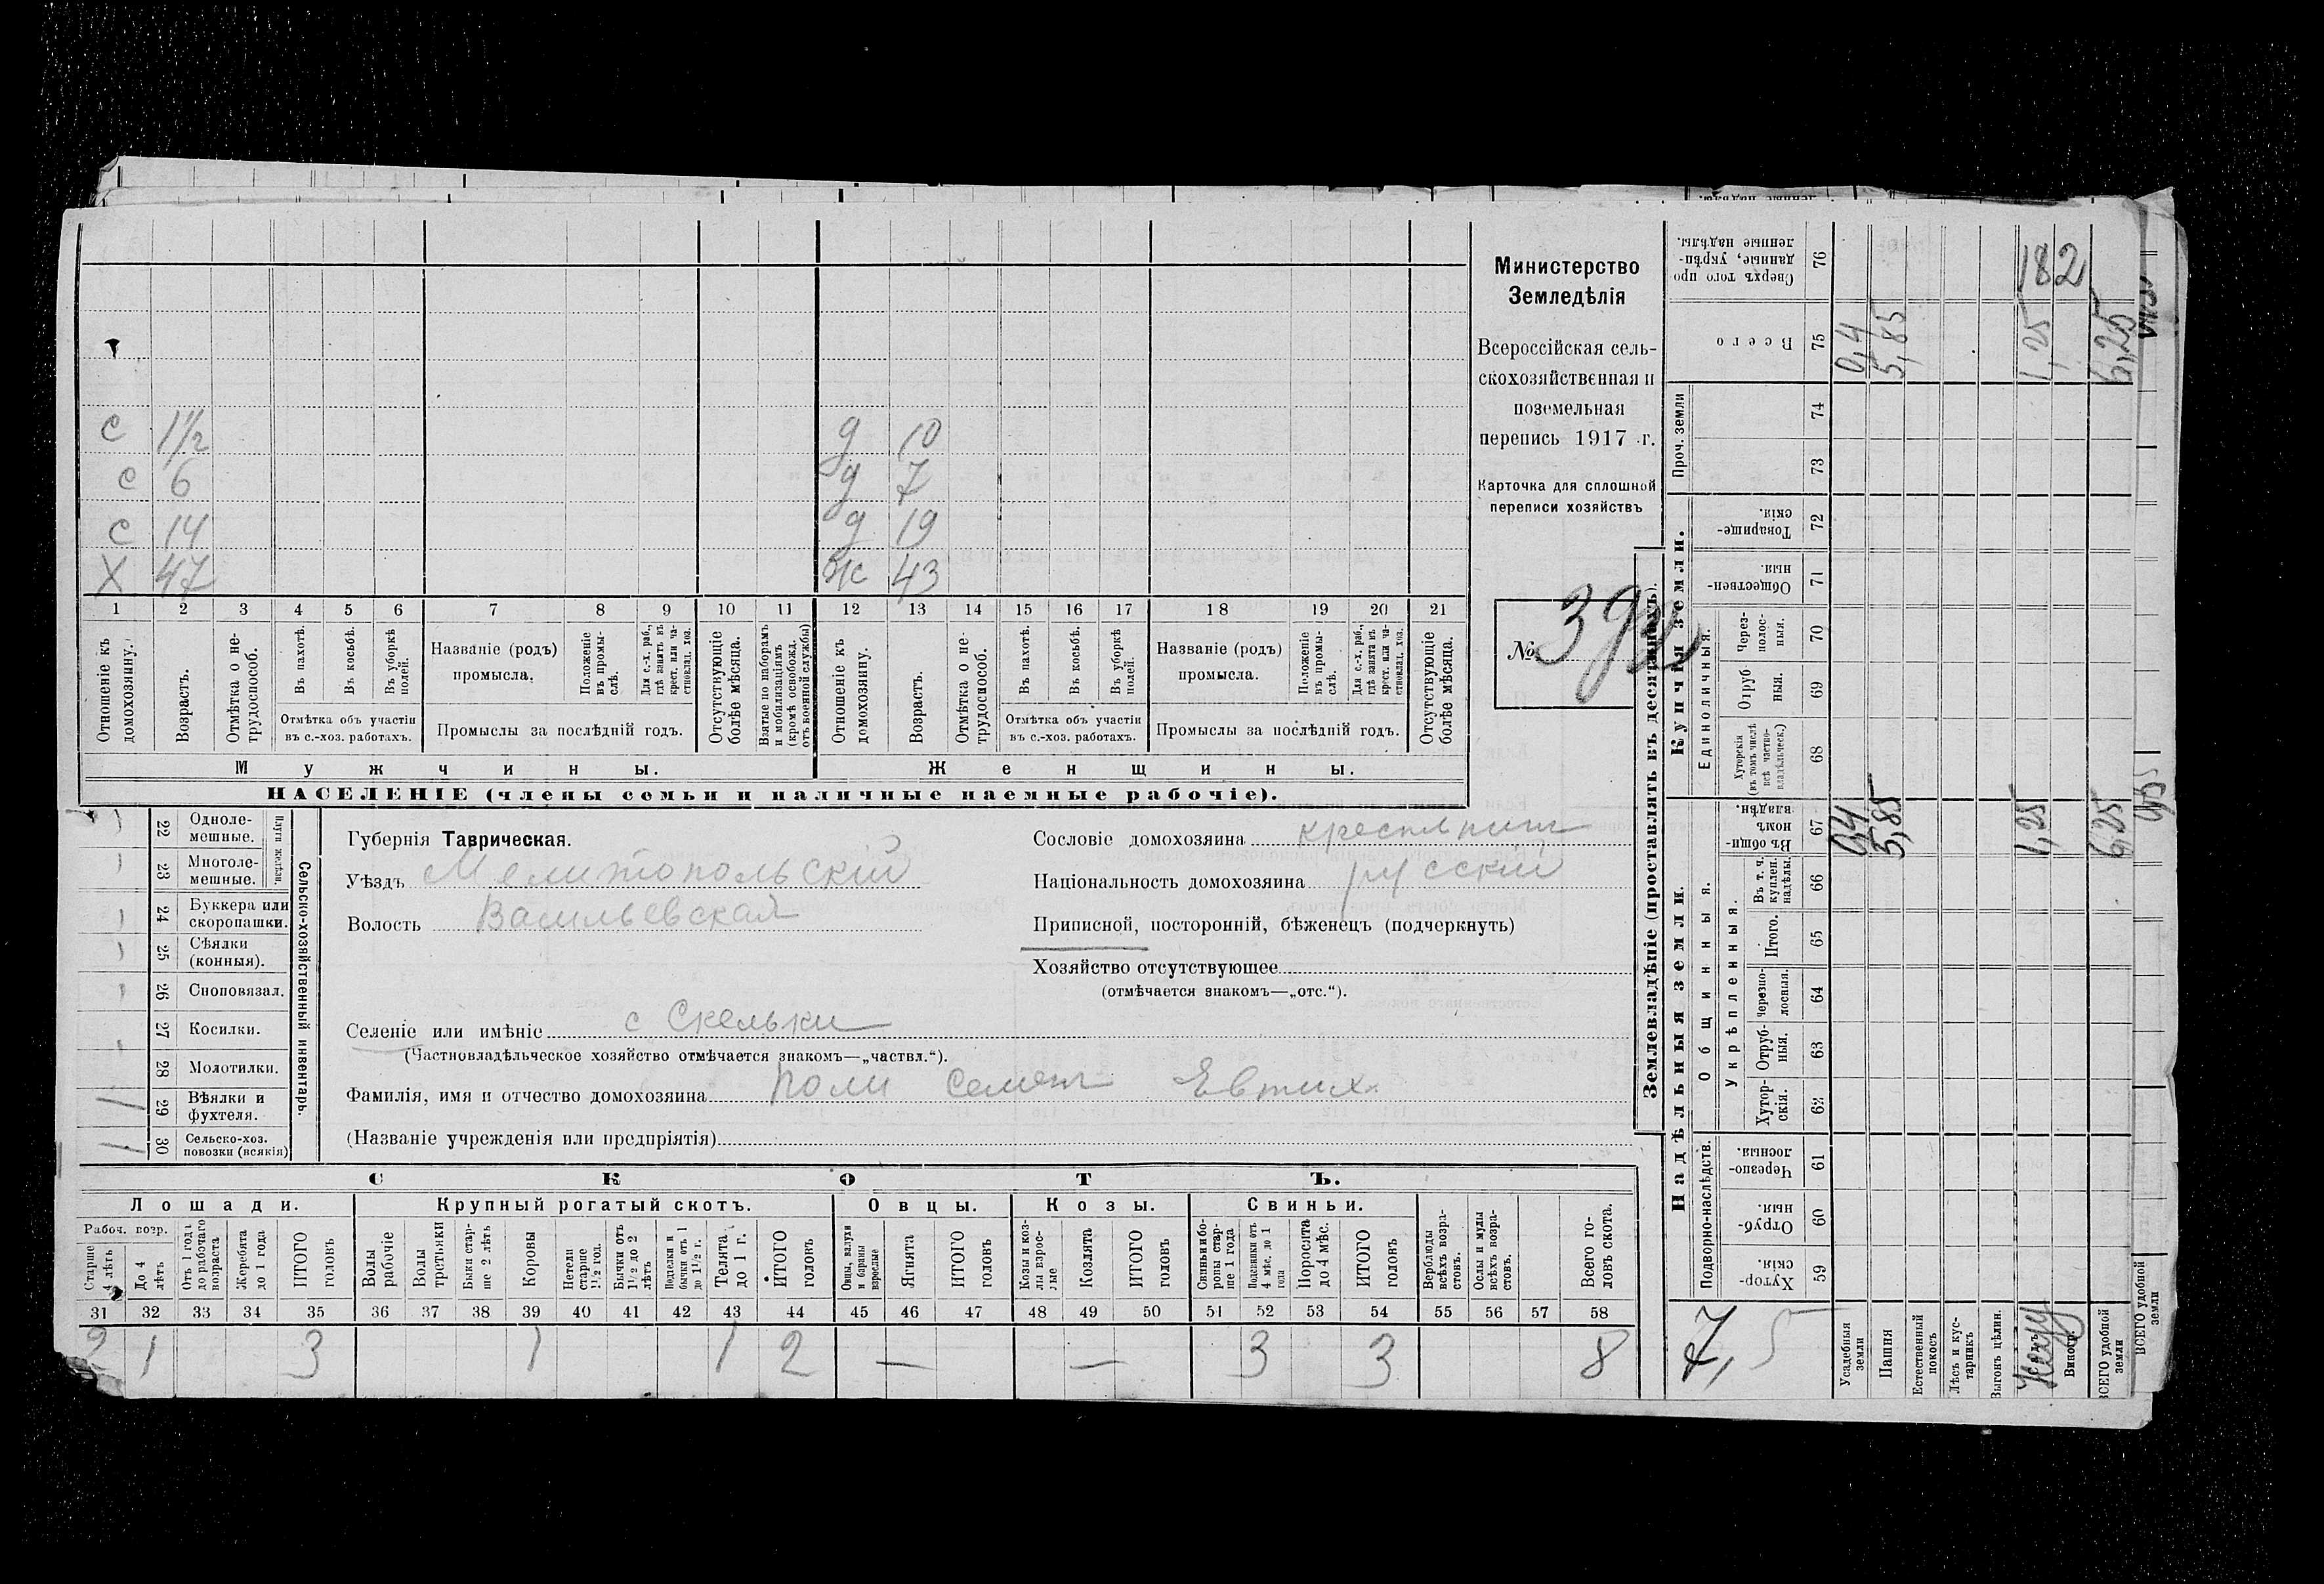 Министерство
Земледѣлія
Всероссійская сель-
скохозяйственная и
поземельная
перепись 1917 г.
Карточка для сплошной
переписи хозяйствъ
№ 392
с 1½ д 10
с 6 д 7
с 14 д 19
Х 47 ж 43
1 2 3 4 5 6 7 8 9 10 11 12 13 14 15 16 17 18 19 20 21
Отношеніе къ домохозяину.
Возрастъ.
Отмѣтка о не-трудоспособ.
Въ пахотѣ.
Въ косьбѣ.
Въ уборкѣ полей.
Отмѣтка объ участіи
въ с.-хоз. работахъ.
Названіе (родъ)
промысла.
Положеніе въ промы-слѣ.
Для с.-х. раб., гдѣ занятъ въ крест. или ча-стновлад. хоз.
Промыслы за послѣдній годъ.
Отсутствующіе болѣе мѣсяца.
Взятые по наборамъ и мобилизаціямъ (кромѣ освобожд. отъ военной службы)
Отношеніе къ домохозяину.
Возрастъ.
Отмѣтка о не-трудоспособ.
Въ пахотѣ.
Въ косьбѣ.
Въ уборкѣ полей.
Отмѣтка объ участіи
въ с.-хоз. работахъ.
Названіе (родъ)
промысла.
Положеніе въ промы-слѣ.
Для с.-х. раб., гдѣ занята въ крест. или ча-стновлад. хоз.
Промыслы за послѣдній годъ.
Отсутствующіе болѣе мѣсяца.
Мужчины. Женщины.
НАСЕЛЕНІЕ (члены семьи и наличные наемные рабочіе).
Сельско-хозяйственный инвентарь.
Плуги желѣзн.
22 Одноле-мешные.
23 Многоле-мешные.
24 Буккера или скоропашки.
25 Сѣялки (конныя).
26 Сноповязал.
27 Косилки.
28 Молотилки.
29 Вѣялки и фухтеля.
30 Сельско-хоз. повозки (всякія)
Губернія Таврическая.
Уѣздъ Мелитопольскій
Волость Васильевская
Селеніе или имѣніе с Скельки
(Частновладѣльческое хозяйство отмѣчается знакомъ—„частвл.“).
Фамилія, имя и отчество домохозяина Семенъ Евтих.
(Названіе учрежденія или предпріятія)
Сословіе домохозяина крестьянинъ
Національность домохозяина русскій
Приписной, посторонній, бѣженецъ (подчеркнуть)
Хозяйство отсутствующее
(отмѣчается знакомъ—„отс.“).
СКОТЪ.
Лошади. Крупный рогатый скотъ. Овцы. Козы. Свиньи.
Рабоч. возр.
Старше 4 лѣтъ
До 4 лѣтъ
Отъ 1 года до рабочаго возраста
Жеребята до 1 года
ИТОГО головъ
Волы рабочіе
Волы третьяки
Быки стар-ше 2 лѣтъ
Коровы
Нетели старше 1½ год.
Бычки отъ 1½ до 2 лѣтъ
Подтелки и бычки отъ 1 до 1½ г.
Телята до 1 г.
ИТОГО головъ
Овцы, валухи и бараны взрослые
Ягнята
ИТОГО головъ
Козы и коз-лы взрос-лые
Козлята
ИТОГО головъ
Свиньи и бо-ровы стар-ше 1 года
Подсвинки отъ 4 мѣс. до 1 года
Поросята до 4 мѣс.
ИТОГО головъ
Верблюды всѣхъ возра-стовъ.
Ослы и мулы всѣхъ возра-стовъ.
Всего го-ловъ скота.
31 32 33 34 35 36 37 38 39 40 41 42 43 44 45 46 47 48 49 50 51 52 53 54 55 56 57 58
2 1 3 1 1 2 — — 3 3 8
Землевладѣніе (проставлять въ десятинахъ).
Купчія земли.
Надѣльныя земли.
Проч. земли
Единоличныя.
Общинныя.
Укрѣпленныя.
Подворно-наслѣдств.
Сверхъ того про-данные, укрѣп-ленные надѣлы. 76
Всего 75
74
73
Товарище-скія. 72
Обществен-ныя. 71
Через-полос-ныя. 70
Отруб-ныя. 69
Хуторскія (въ томъ числѣ всѣ частно-владѣльческ.) 68
Въ общин-номъ владѣн. 67
Въ т. ч. куплен. надѣлы. 66
Итого. 65
Черезпо-лосныя. 64
Отруб-ныя. 63
Хутор-скія. 62
Черезпо-лосныя. 61
Отруб-ныя. 60
Хутор-скія. 59
7,5
Усадебныя земли 0,4 0,4
Пашня 5,85 5,85
Естественный покосъ
Лѣсъ и кус-тарникъ
Выгонъ цѣлин.
1,25 1,25 182
ВСЕГО удобной земли 6,25 6,25
ВСЕГО удобной земли